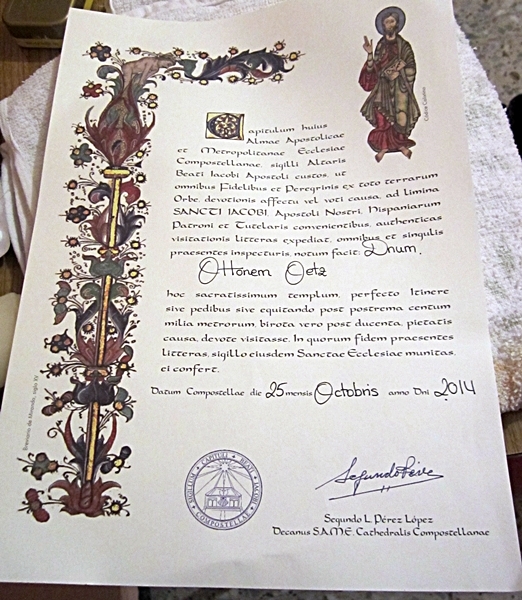 Capitulum huius
Almae Apostolicae
et Metropolitanae Ecclesiae
Compostellanae, sigilli Altaris
Beati Iacobi Apostoli custos, ut
omnibus Fidelibus et Peregrinis ex toto terrarum
Orbe, devotionis affectu vel voti causa, ad limina
SANCTI IACOBI, Apostoli Nostri, Hispaniarum
Patroni et Tutelaris convenientibus, authenticas
visitationis litteras expediat, omnibus et singulis
praesentes inspecturis, notum facit: Dnum.
Ottonem Oetz
hoc sacratissimum templum, perfecto Itinere
sive pedibus sive equitando post postrema centum
milia metrorum, birota vero post ducenta, pietatis
causa, devote visitasse. In quorum fidem praesentes
litteras, sigillo eiusdem Sanctae Ecclesiae munitas,
ei confert.
Datum Compostellae die 25 mensis Octobris anno Dni 2014
SIGILLUM CAPITULI BEATI IACOBI COMPOSTELLAE
Segundo Pérez
Segundo L. Pérez López
Decanus S.A.M.E. Cathedralis Compostellanae
Códice Calixtino